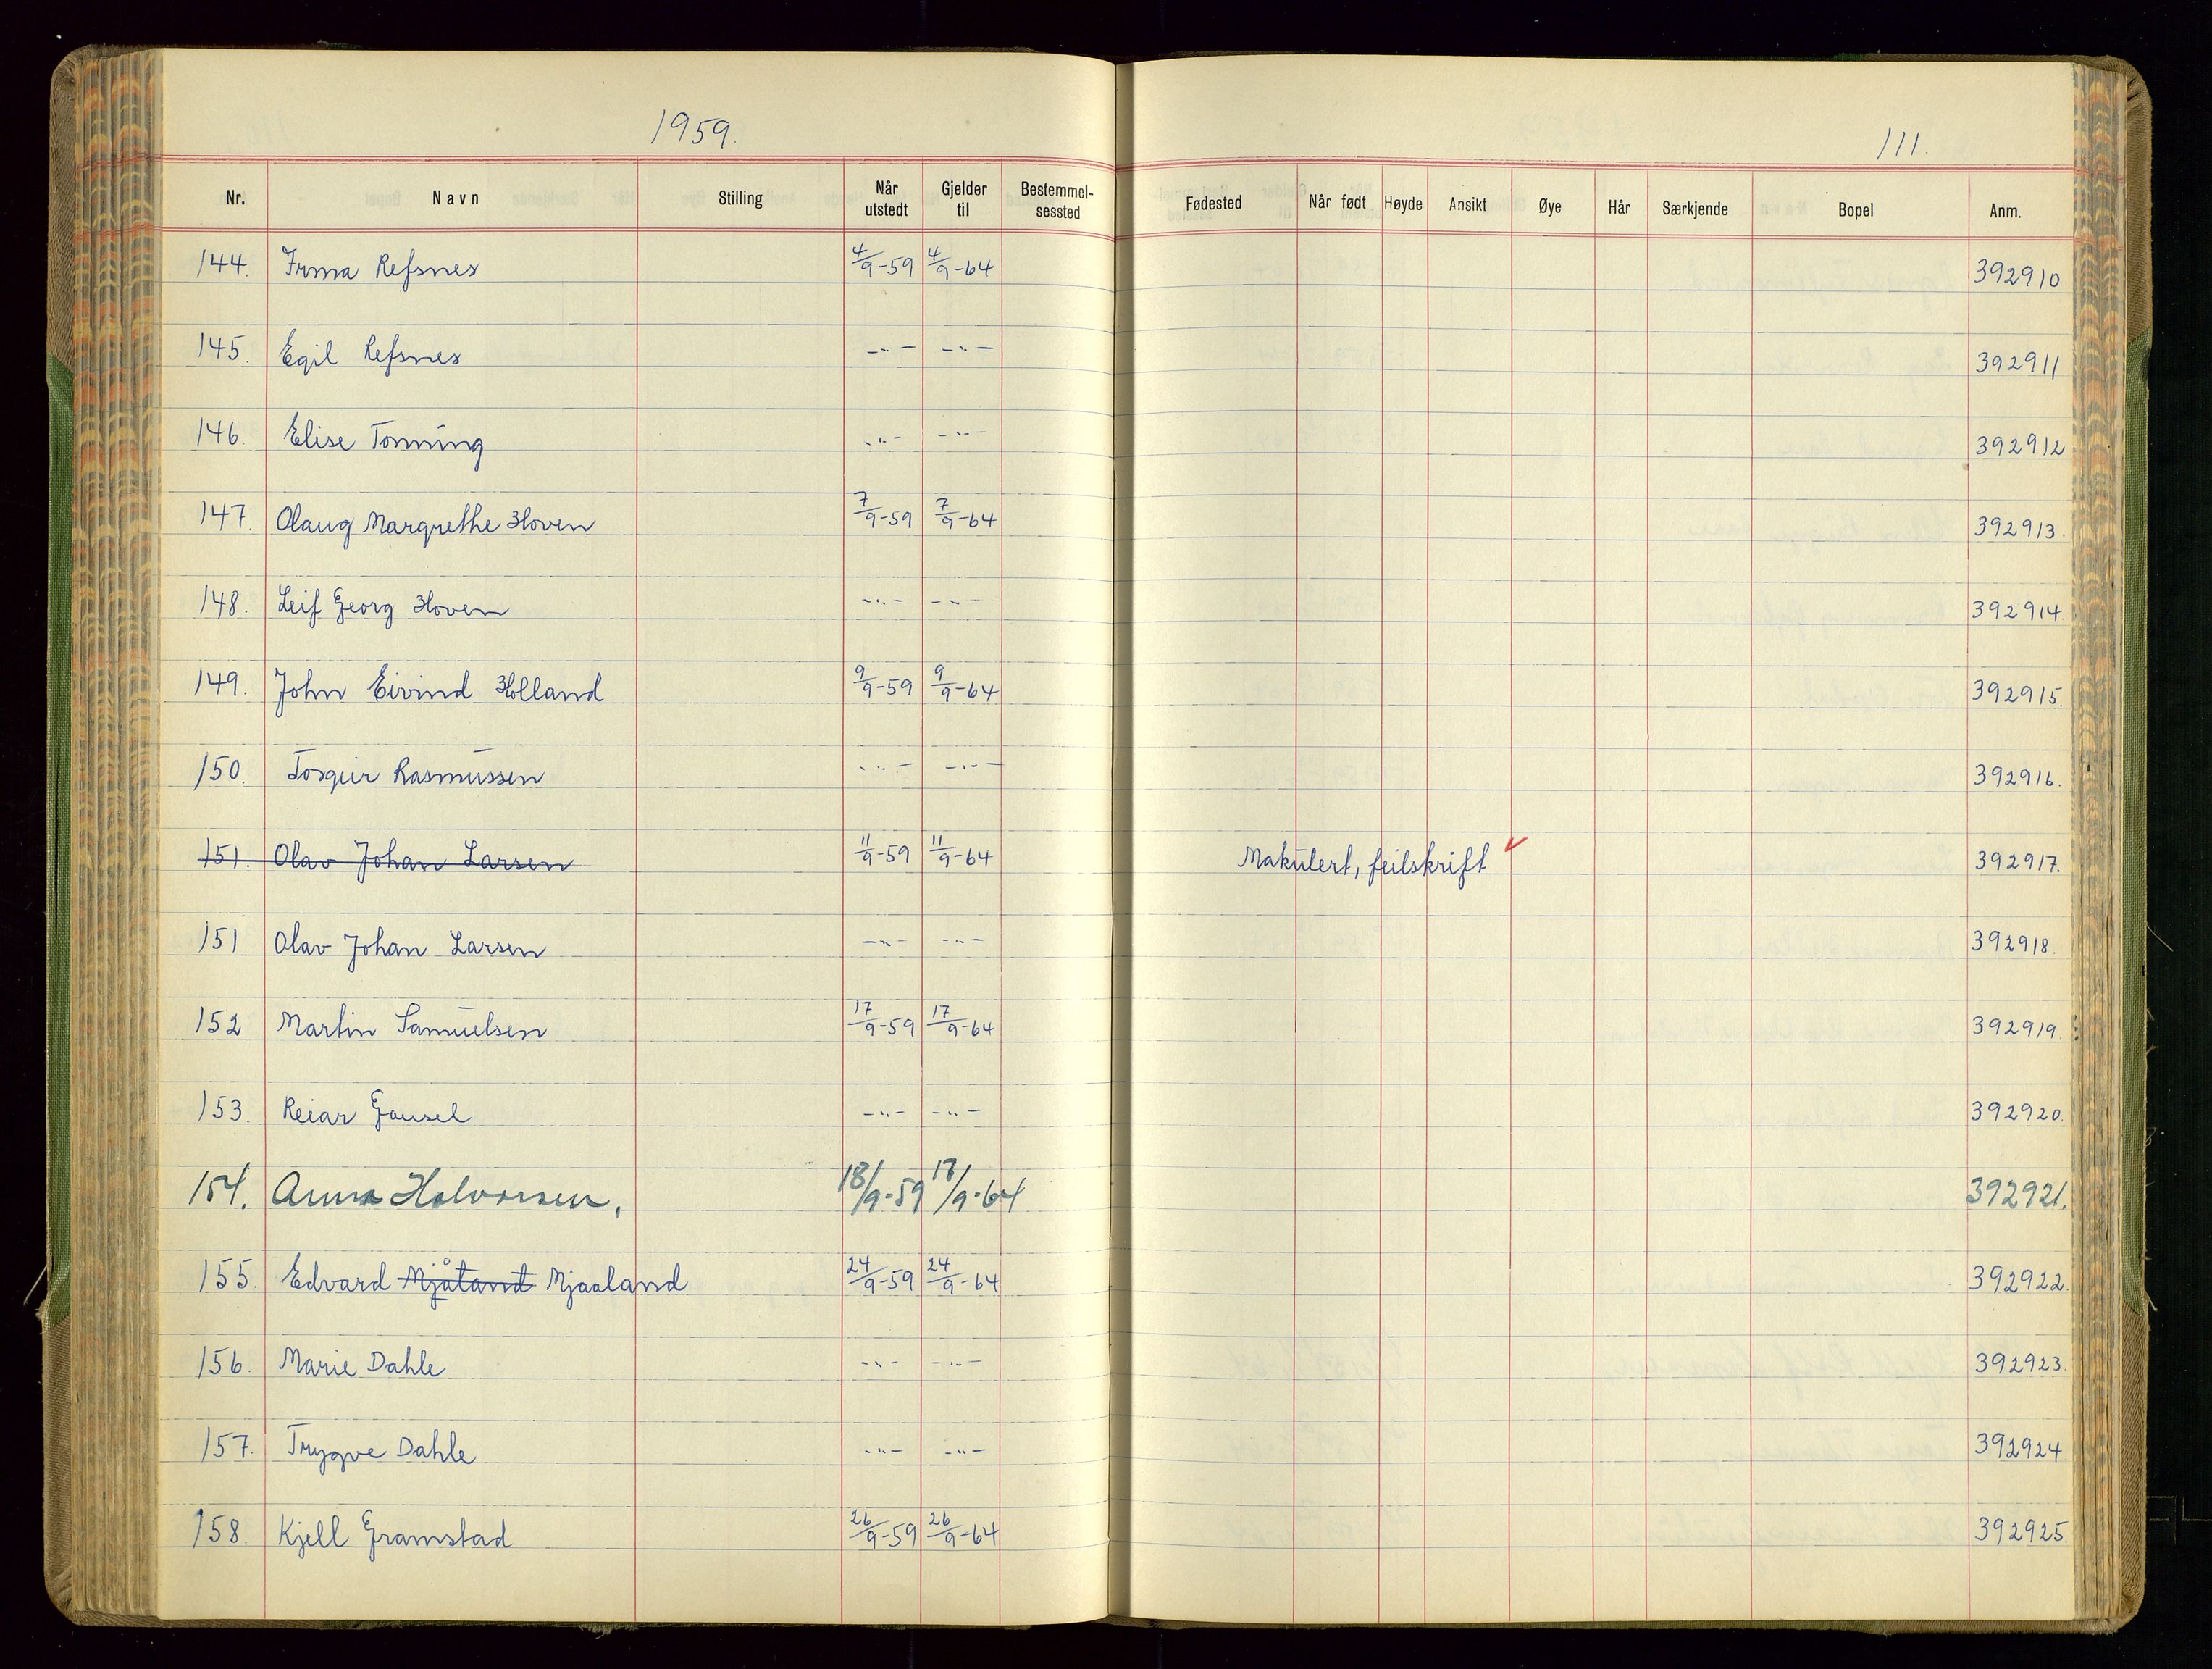 1959.
111.
Nr. Navn Stilling Når utstedt Gjelder til Bestemmel-sessted Fødested Når født Høyde Ansikt Øye Hår Særkjende Bopel Anm.
144. Irma Refsnes 4/9-59 4/9-64 392910
145. Egil Refsnes -"- -"- 392911
146. Elise Tonning -"- -"- 392912
147. Olaug Margrethe Hoven 7/9-59 7/9-64 392913.
148. Leif Georg Hoven -"- -"- 392914.
149. John Eivind Holland 9/9-59 9/9-64 392915.
150. Torgeir Rasmussen -"- -"- 392916.
151. Olav Johan Larsen 11/9-59 11/9-64 Makulert, feilskrift 392917.
151 Olav Johan Larsen -"- -"- 392918.
152 Martin Samuelsen 17/9-59 17/9-64 392919.
153. Reiar Gausel -"- -"- 392920.
154. Anna Halvorsen, 18/9-59 18/9-64 392921.
155. Edvard Mjåland Mjaaland 24/9-59 24/9-64 392922.
156. Marie Dahle -"- -"- 392923.
157. Trygve Dahle -"- -"- 392924
158. Kjell Gramstad 26/9-59 26/9-64 392925